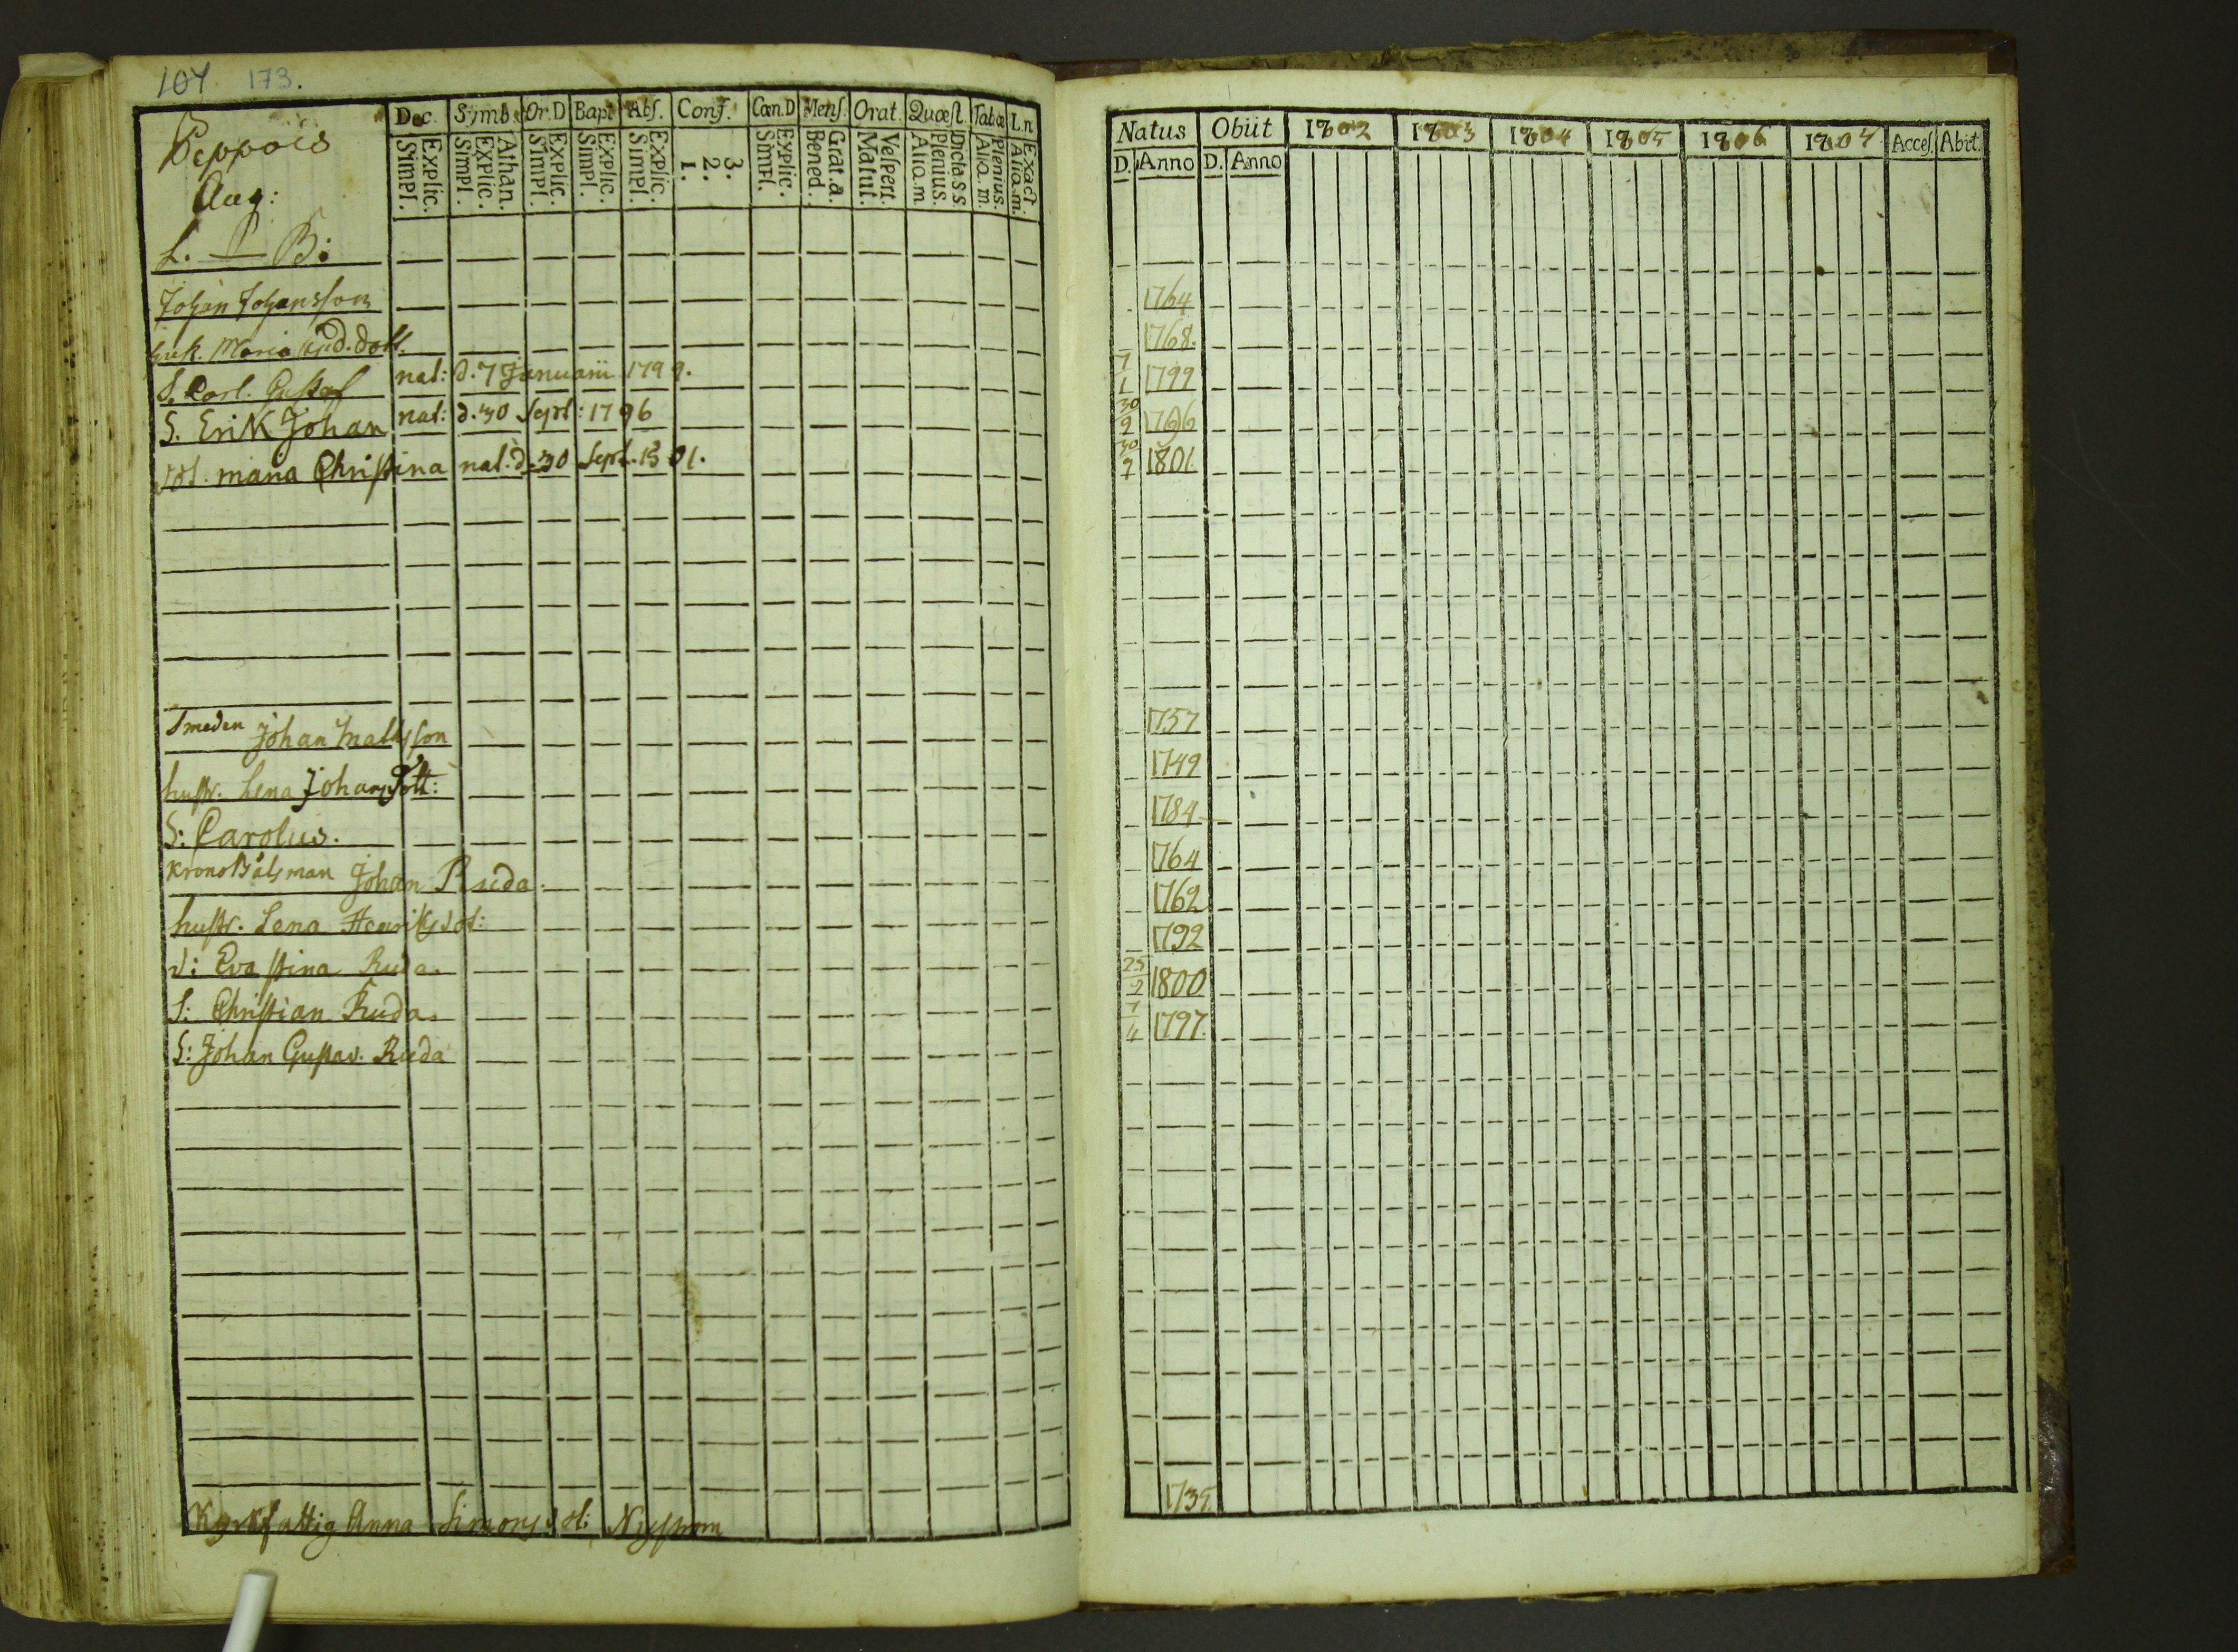 107 173.
Peppois
Aug:
L. B:
Dec. Symb. Or.D Bapt Abſ. Conf. Cœn.D Menſ. Orat. Quæſt. Tabæ L.n
Explic. Simpl. Athan. Explic. Simpl. Explic. Simpl. Explic. Simpl. Explic. Simpl. 3. 2. 1. Explic. Simpl. Grat.a. Bened. Veſpert. Matut. Dicta S S. Plenius. Aliq.m Plenius. Aliq.m. Exact Aliq.m.
Johan Johansson
Maria
S. Carl. Gustaf nat: d. 7 Januarii 1799.
S. Erik Johan nat: d. 30 Sept: 1796
dot. maria Christina nat. d. 30 Sept. 1801.
Smeden Johan Mattsson
hustr. Lena Johansdott:
S: Carolus.
Johan Ruda
hustr. Lena Henriksdot:
d: Eva Stina Ruda.
S: Christian Ruda.
S: Johan Gustav. Ruda
Kyrkfattig Anna Simonsdot:
Natus Obiit 1802 1803 1804 1805 1806 1807 Acceſ. Abit.
D. Anno D. Anno
1764
1768.
7/1 1799
30/9 1796
30/9 1801
1757
1749
1784
1764
1762
1792
25/2 1800
7/4 1797.
1735.